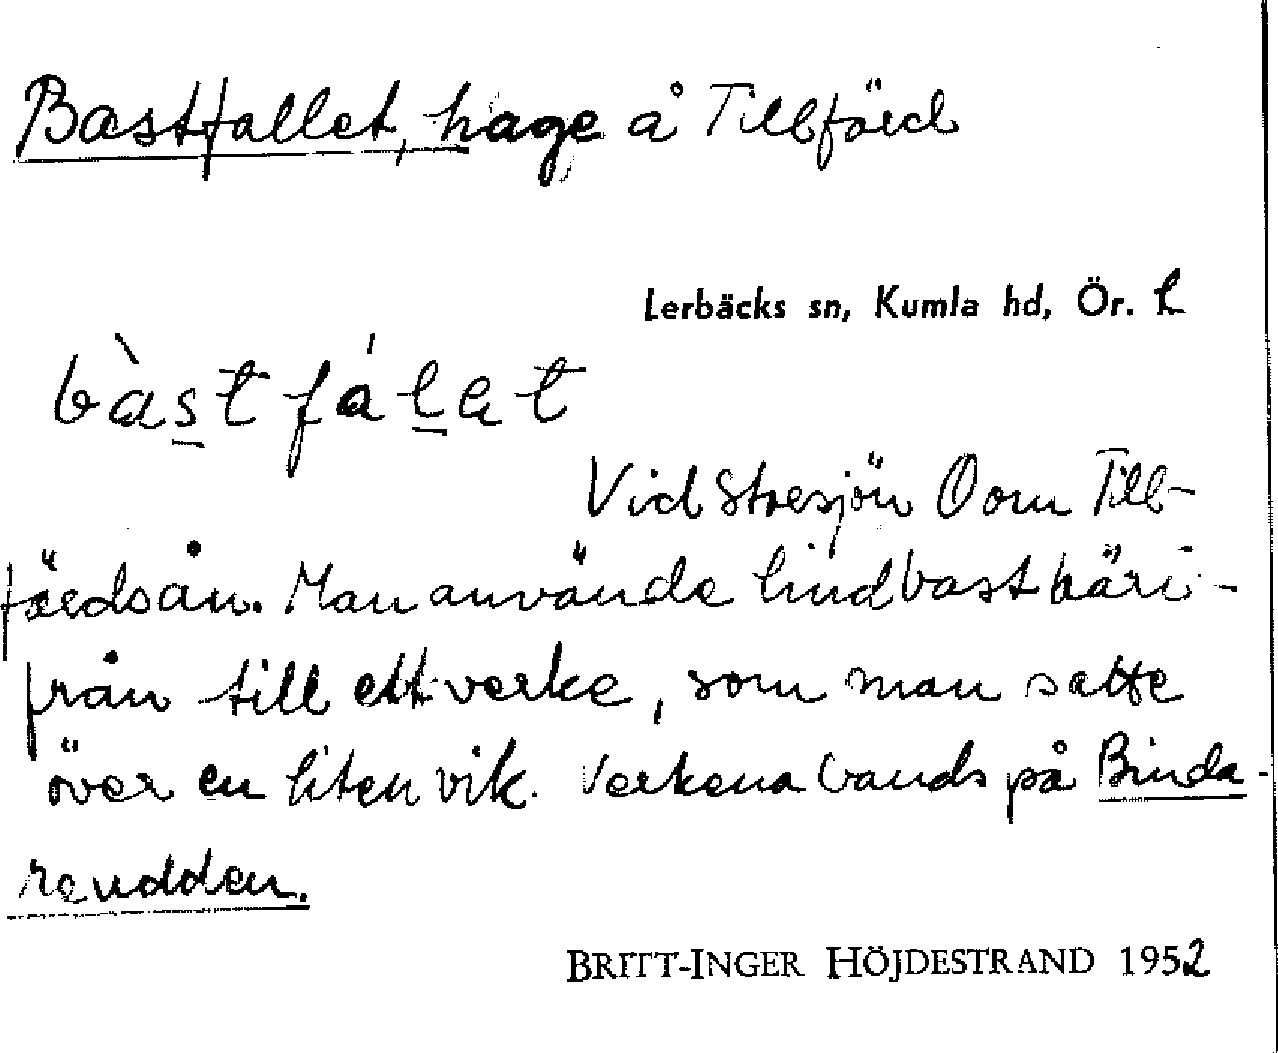 Bastfallet, hage å Tillfärd
Lerbäcks sn, Kumla hd, Ör. l
bàstfálat
Vid Stresjön O om Till-
färdsån. Man använde lindbast häri-
från till ett verke, som man satte
över en liten vik. Verkena bands på Binda-
reudden.
BRITT-INGER HÖJDESTRAND 1952